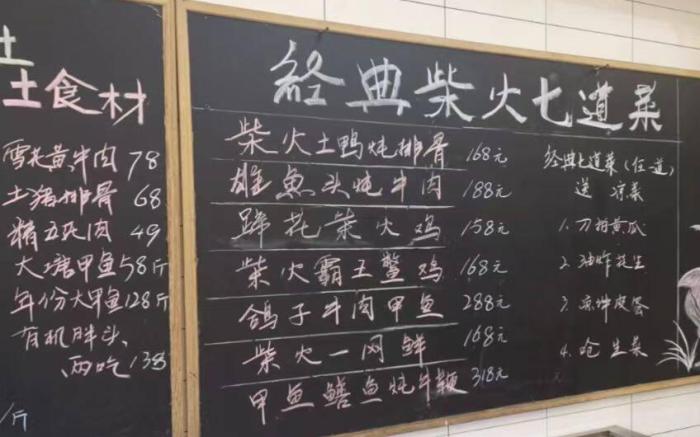 土
土食材
雪花黄牛肉 78
土猪排骨 68
精五花肉 49
大塘甲鱼58/斤
年份大甲鱼128/斤
有机胖头、
两吃 138
/斤
经典柴火七道菜
柴火土鸭炖排骨 168元
雄鱼头炖牛肉 188元
蹄花柴火鸡 158元
柴火霸王鳖鸡 168元
鸽子牛肉甲鱼 288元
柴火一网鲜 168元
甲鱼鳝鱼炖牛鞭 318元
经典七道菜(任一道)
送 凉菜
1.刀拍黄瓜
2.油炸花生
3.凉拌皮蛋
4.呛生菜